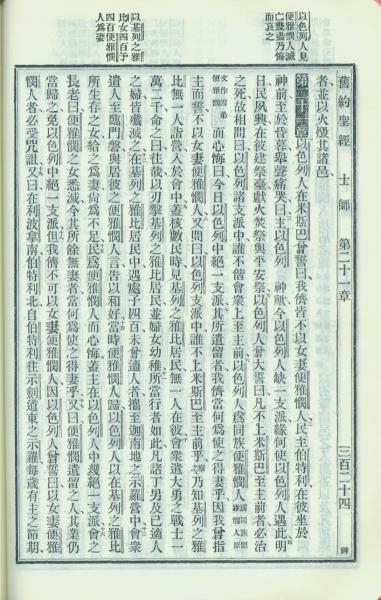 以色列人見
便雅憫人滅
亡幾盡乃悔
而哀之
以基列之雅
比女四百予
四百便雅憫
人爲妻
舊約聖經 士師 第二十一章 三百二十四
者並以火燬其諸邑
第二十一章 以色列人在米斯巴曾誓曰我儕皆不以女妻便雅憫人民至伯特利在彼坐於
神前至於昏暮舉聲痛哭曰主以色列 神歟今以色列人缺一支派緣何使以色列人遇此明
日民夙興在彼建祭臺獻火焚祭與平安祭以色列人曾大誓曰凡不上米斯巴至主前者必治
之死故相問曰以色列諸支派中誰不偕會衆上至主前以色列人爲同族便雅憫人爲同族便雅憫人原
文作因弟便雅憫而心悔曰今日以色列中絕一支派其所遺留者我儕當何爲使之得妻乎因我曾指
主而誓不以女妻便雅憫人又問曰以色列支派中誰不上米斯巴至主前乎察之乃知基列之雅
比無一人詣營入於會中蓋核數民時見基列之雅比居民無一人在彼會衆遣大勇之戰士一
萬二千命之曰往哉以刃擊基列之雅比居民並婦女幼稚所當行者如此凡諸丁男及已適人
之婦皆殲滅之在基列之雅比居民中遇處子四百未曾適人者攜至迦南地之示羅營中會衆
遣人至臨門磐與居彼之便雅憫人言告以和好當時便雅憫人歸以色列人以在基列之雅比
所生存之女給之爲妻尚爲不足民爲便雅憫人而心悔蓋主在以色列人中缺絕一支派會之
長老曰便雅憫之女悉滅今其所餘無妻者當何爲使之得妻乎又曰便雅憫遺留之人其業仍
當歸之免以色列中絕一支派但我儕不可以女妻便雅憫人因以色列人曾誓曰以女妻便雅
憫者必受咒詛又曰在利波拿南伯特利北自伯特利往示劍道東之示羅每歲有主之節期
神